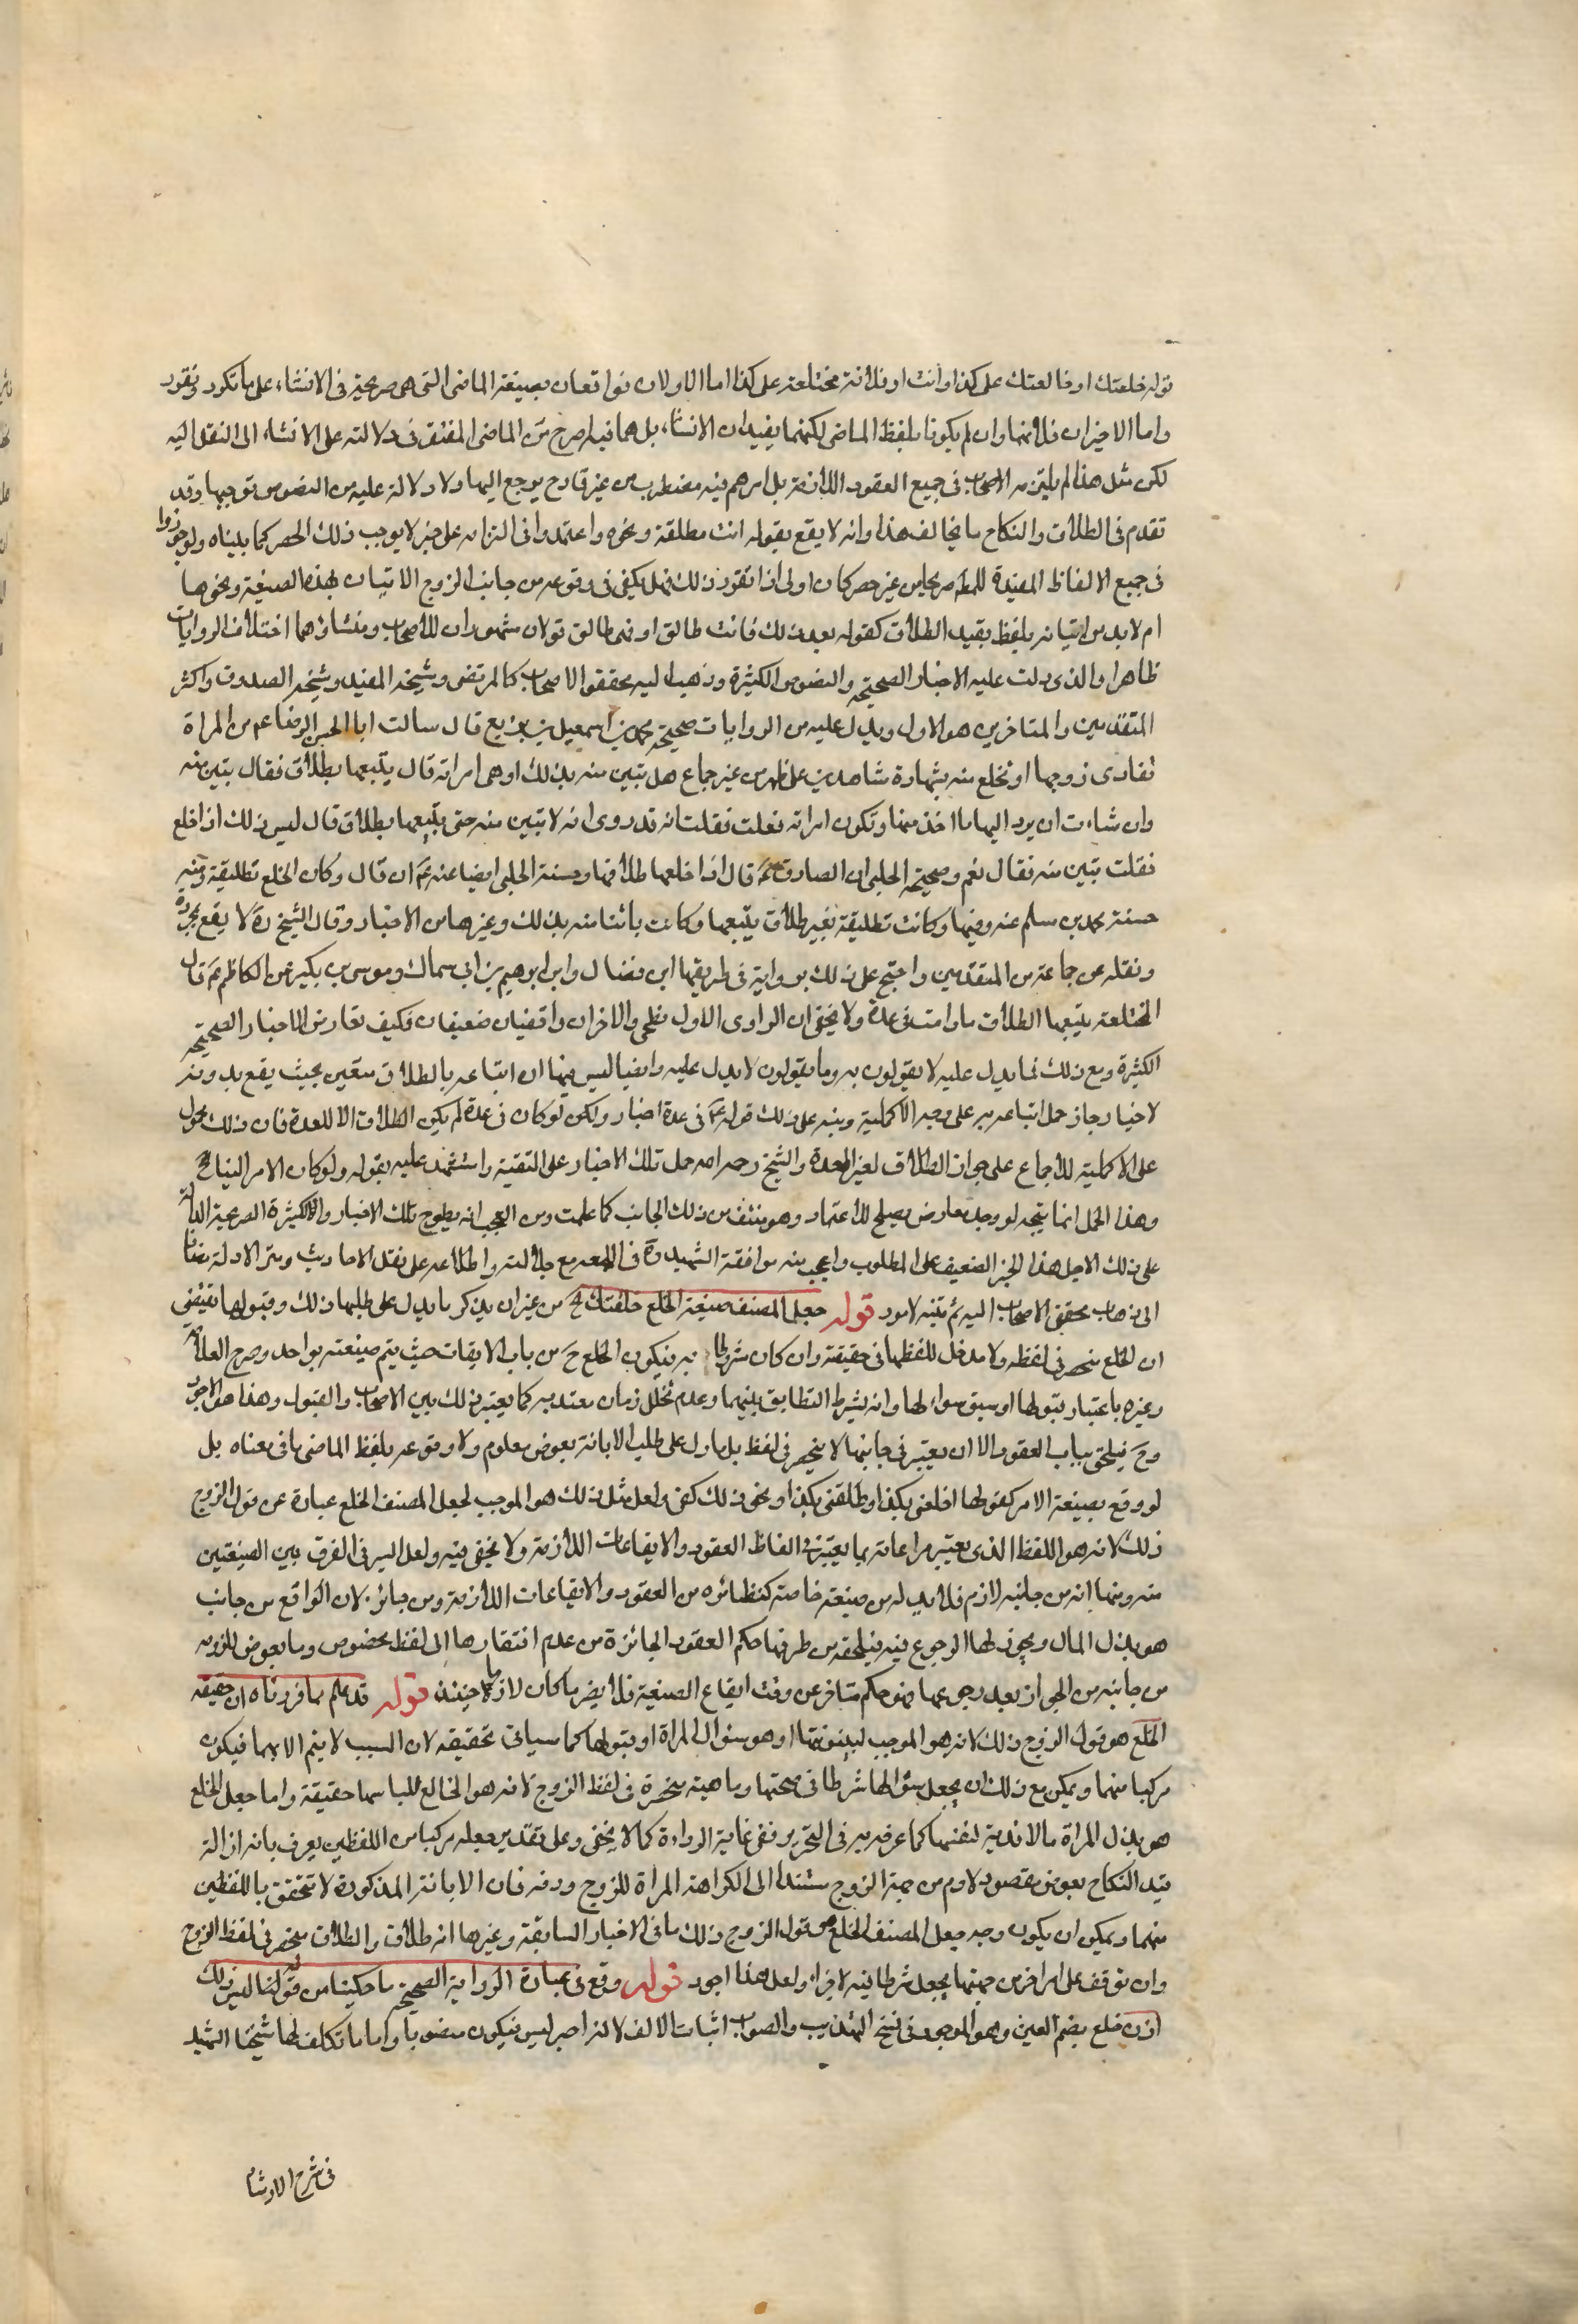 قوله خلعتك او خالعتك على كذا وانت او فلانة مختلعة على كذا اما الاولان فواقعان بصيغة الماضى التى هى صريحة فى الانشاء على ما تكرر وتقرر
واما الاخيران فلانهما وان لم يكونا بلفظ الماضى لكنهما يفيدان الانشاء بل هما فيه اصرح من الماضى المفتقر فى دلالته على الانشاء الى النقل اليه
لكن مثل هذا لم يلتزمه الاصحاب فى جميع العقود اللازمة بل امرهم فيه مضطرب من غير قادح يرجع اليها ولا دلالة عليه من النصوص توجبها وقد
تقدم فى الطلاق والنكاح ما يخالف هذا وانه لا يقع بقوله انت مطلقة ونحوه واعتمدوا فى التزامه على خبر لا يوجب ذلك الحصر كما بيناه ولو جوزوا
فى جميع الالفاظ المفيدة للمط صريحا من غير حصر كان اولى اذا تقرر ذلك فهل يكفى فى وقوعه من جانب الزوج الاتيان بهذه الصيغة ونحوها
ام لا بد من اتيانه بلفظ يفيد الطلاق كقوله بعد ذلك فانت طالق او فهى طالق قولان مشهوران للاصحاب ومنشاؤهما اختلاف الروايات
ظاهرا والذى دلت عليه الاخبار الصحيحة والنصوص الكثيرة وذهب اليه محققوا الاصحاب كالمرتضى وشيخه المفيد وشيخه الصدوق واكثر
المتقدمين والمتاخرين هو الاول ويدل عليه من الروايات صحيحة محمد بن اسمعيل بن بزيع قال سالت ابا الحسن الرضا ع عن المراة
تفارى زوجها او تخلع منه بشهادة شاهدين على طهر من غير جماع هل تبين منه بذلك او هى امراته قال يتبعها بطلاق فقال تبين منه
وان شاءت ان يرد اليها ما اخذ منها وتكون امراته فعلت فقلت انه قد روى انه لا تبين منه حتى يتبعها بطلاق قال ليس ذلك اذا خلع
فقلت تبين منه فقال نعم وصحيحة الحلبى ان الصادق ع قال اذا خلعها طلاقها وحسنة الحلبى ايضا عنه ع ان قال وكان الخلع تطليقة ومنه
حسنة محمد بن مسلم عنه وفيها وكانت تطليقة بغير طلاق يتبعها وكانت بائنا منه بذلك وغيرها من الاخبار وقال الشيخ ره لا يقع بمجرده
ونقله عن جماعة من المتقدمين واحتج على ذلك برواية فى طريقها ابن فضال وابراهيم بن ابى سماك وموسى بن بكير عن الكاظم ع قال
المختلعة يتبعها الطلاق ما دامت فى عدة ولا يخفى ان الراوى الاول فطحى والاخران واقفيان ضعيفان فكيف تعارض الاخبار الصحيحة
الكثيرة ومع ذلك فما يدل عليه لا يقولون به وما يقولون لا يدل عليه وايضا ليس فيها ان اتباعه بالطلاق متعين بحيث يقع بدونه
لاخيار جاز حمل اتباعه به على وجه الاكملية ونبه على ذلك قوله ع فى عدة اخبار ولكن لو كان فى عدة لم يكن الطلاق الا للعدة فان ذلك محمول
على الاكملية للاجماع على جواز الطلاق لغير العدة والشيخ رحمه الله حمل تلك الاخبار على التقية واستشهد عليه بقوله ولو كان الامر الينا الخ
وهذا الحمل انما يتجه لو وجد معارض يصلح للاعتماد وهو منتف من ذلك الجانب كما علمت ومن العجب انه يطرح تلك الاخبار الكثيرة الصريحة الدالة
على ذلك لاجل هذا الخبر الضعيف على المطلوب واعجب منه موافقة الشهيد ره فى اللمعة مع جلالته واطلاعه على نقل الاحاديث وسر الادلة مضافا
الى ذهاب محقق الاصحاب اليه ثم تنبه لامور قوله جعل المصنف صيغة الخلع خلعتك الخ من غير ان يذكر ما يدل على طلبها ذلك وقبولها تقتضى
ان الخلع منحصر فى لفظه ولا مدخل للفظها فى حقيقته وان كان شرطا فيه فيكون الخلع ح من باب الايقاعات حيث يتم صيغته بواحد وصرح العلامة
وغيره باعتبار قبولها او سبق سؤالها وانه يشترط التطابق بينهما وعدم تخلل زمان معتد به كما يعتبر ذلك بين الايجاب والقبول وهذا هو الاجود
وح فيلحق بباب العقود الا ان يعتبر فى جانبها لا ينحصر فى لفظ بل ما دل على طلب الابانة بعوض معلوم ولا وقوعه بلفظ الماضى ما فى معناه بل
لو وقع بصيغة الامر كقولها اخلعنى بكذا او طلقنى بكذا او نحو ذلك كفى ولعل مثل ذلك هو الموجب لجعل المصنف الخلع عبارة عن قول الزوج
ذلك لانه هو اللفظ الذى يعتبر مراعاته بما يعتبر فى الفاظ العقود والايقاعات اللازمة ولا يخفى فيه ولعل السر فى الفرق بين الصيغتين
منه ومنها انه من جانبه لازم فلا بد له من صيغة خاصة كنظائره من العقود والايقاعات اللازمة ومن جانبها جائز لان الواقع من جانب
هو بذل المال ويجوز لها الرجوع فيه فيلحقه من طرفها حكم العقود الجائزة من عدم افتقارها الى لفظ مخصوص وما يعوض للزومه
من جانبه من الجواز بعد رجوعها فهو حكم متاخر عن وقت ايقاع الصيغة فلا يضر ما كان لازما حينئذ قوله قد علم مما قررناه ان حقيقة
الخلع هو قول الزوج ذلك لانه هو الموجب لبينونتها او هو سؤال المراة او قبولها كما سياتى تحقيقه لان السبب لا يتم الا بهما فيكون
مركبا منهما ويمكن مع ذلك ان يجعل سؤالها شرطا فى صحتها وماهيته منحصرة فى لفظ الزوج لانه هو الخالع للباسها حقيقة واما جعل الخلع
هو بذل المراة مالا فدية لنفسها كما عرفه به فى التحرير ففى غاية الرداءة كما لا يخفى وعلى تقدير جعله مركبا من اللفظين يعرف بانه ازالة
قيد النكاح بعوض مقصود لازم من جهة الزوج مستندا الى الكراهة المراة للزوج ودفه فان الابانة المذكورة لا تتحقق باللفظين
منهما ويمكن ان يكون وجه جعل المصنف الخلع هو قول الزوج ذلك ما فى الاخبار السابقة وغيرها انه طلاق والطلاق منحصر فى لفظ الزوج
وان توقف على امر اخر من جهتها بجعل شرطا فيه لا جزاء ولعل هذا اجود قوله وقع فى عبارة الرواية الصحيحة ما حكيناه من قوله لنا ليس ذلك
اذن خلع بضم العين وهو الموجود فى نسخ التهذيب والصواب اثبات الالف لانه خبر ليس فيكون منصوبا واما ما تكلف لها شيخنا الشهيد
فى شرح الارشاد